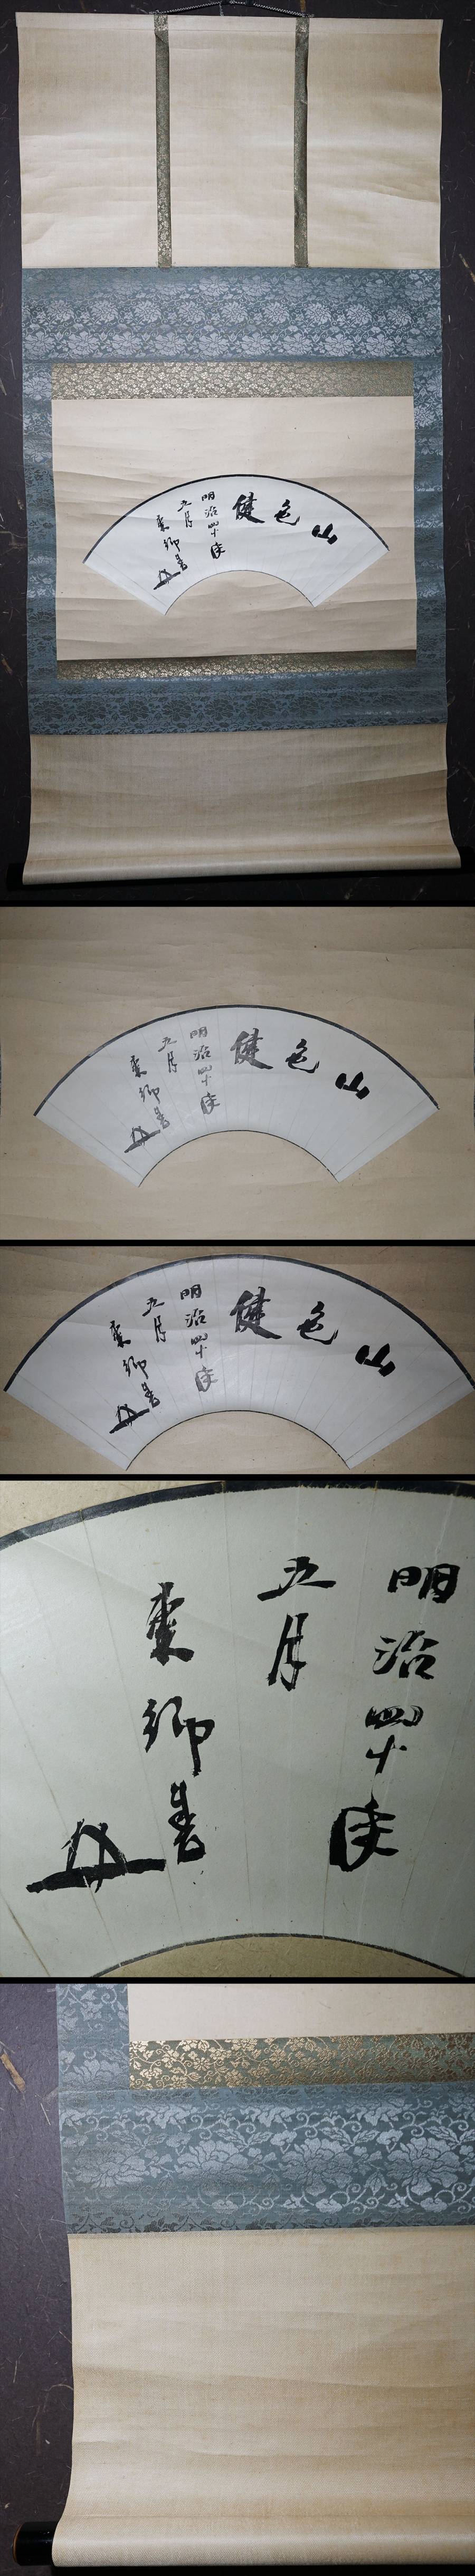 山色健
明治四十
五月
東郷書